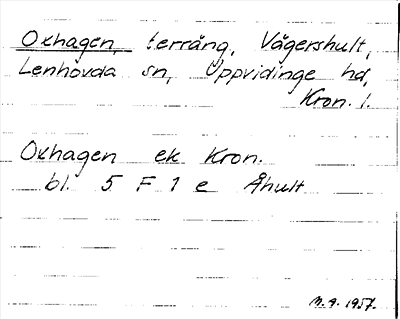 Oxhagen, terräng, Vägershult,
Lenhovda sn, Uppvidinge hd,
Kron. l.
Oxhagen ek Kron.
bl. 5 F 1 e Åhult
M.A. 1957.